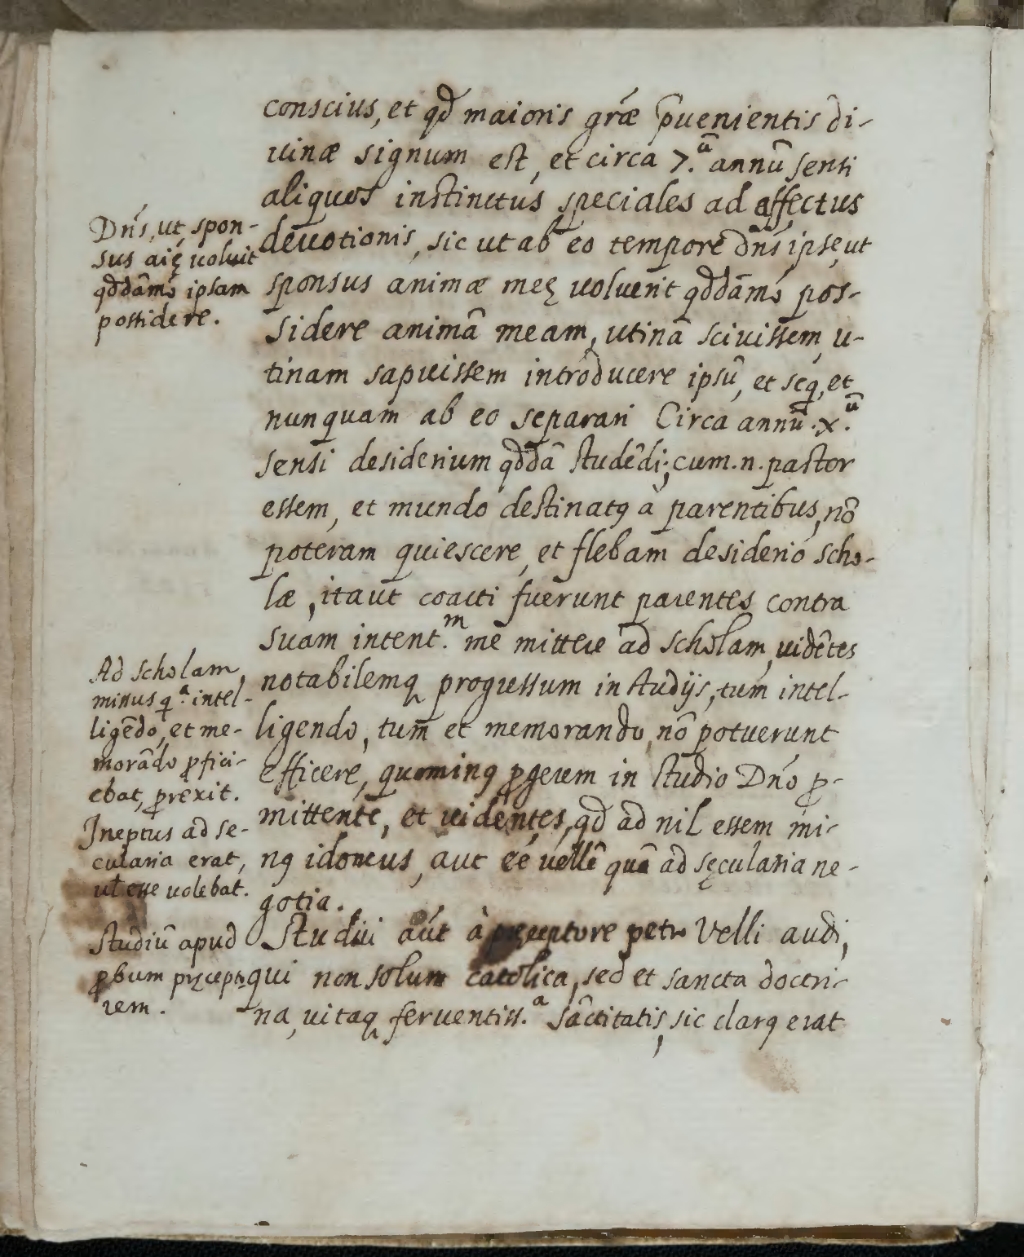 conscius, et qđ maioris gr̃æ p̃uenientis di-
uinæ signum est, et circa 7.ũ annũ sensi
aliquos instinctus speciales ad affectus
deuotionis, sic ut ab eo tempore Dñs ipse, ut
sponsus animæ meę uoluerit qđdãmõ pos-
sidere animã meam, utinã sciuissem, u-
tinam sapuissem introducere ipsũ, et seq̃, et
nunquam ab eo separari Circa annũ .x.ũ
sensi desiderium qđdã studẽdi; cum .n. pastor
essem, et mundo destinatꝯ à parentibus, nõ
poteram quiescere, et flebam desiderio scho-
læ, itaut coacti fuerunt parentes contra
suam intent.m me mittere ad scholam, uidẽtes
notabilemq progressum in studijs, tum intel-
ligendo, tum et memorando, nõ potuerunt
efficere, quominꝯ ꝓgerem in studio Dño ꝓ-
mittente, et uidentes, qđ ad nil essem mi-
nꝯ idoneus, aut eẽ uellẽ quã ad sęcularia ne-
gotia.
Studui aũt à pręceptore petro Velli audi,
qui non solum catolica, sed et sancta doctri-
na, uitaq feruentiss.a sãctitatis, sic clarꝯ erat
Dñs, ut spon-
sus aię uoluit
qđdãmõ ipsam
possidere.
Ad scholam
missus q.a intel-
ligẽdo, et me-
morãdo ꝓfici-
ebat, ꝓrexit.
Ineptus ad se-
cularia erat,
ul esse uolebat.
Studiũ apud
ꝓbum pręcepto
rem.